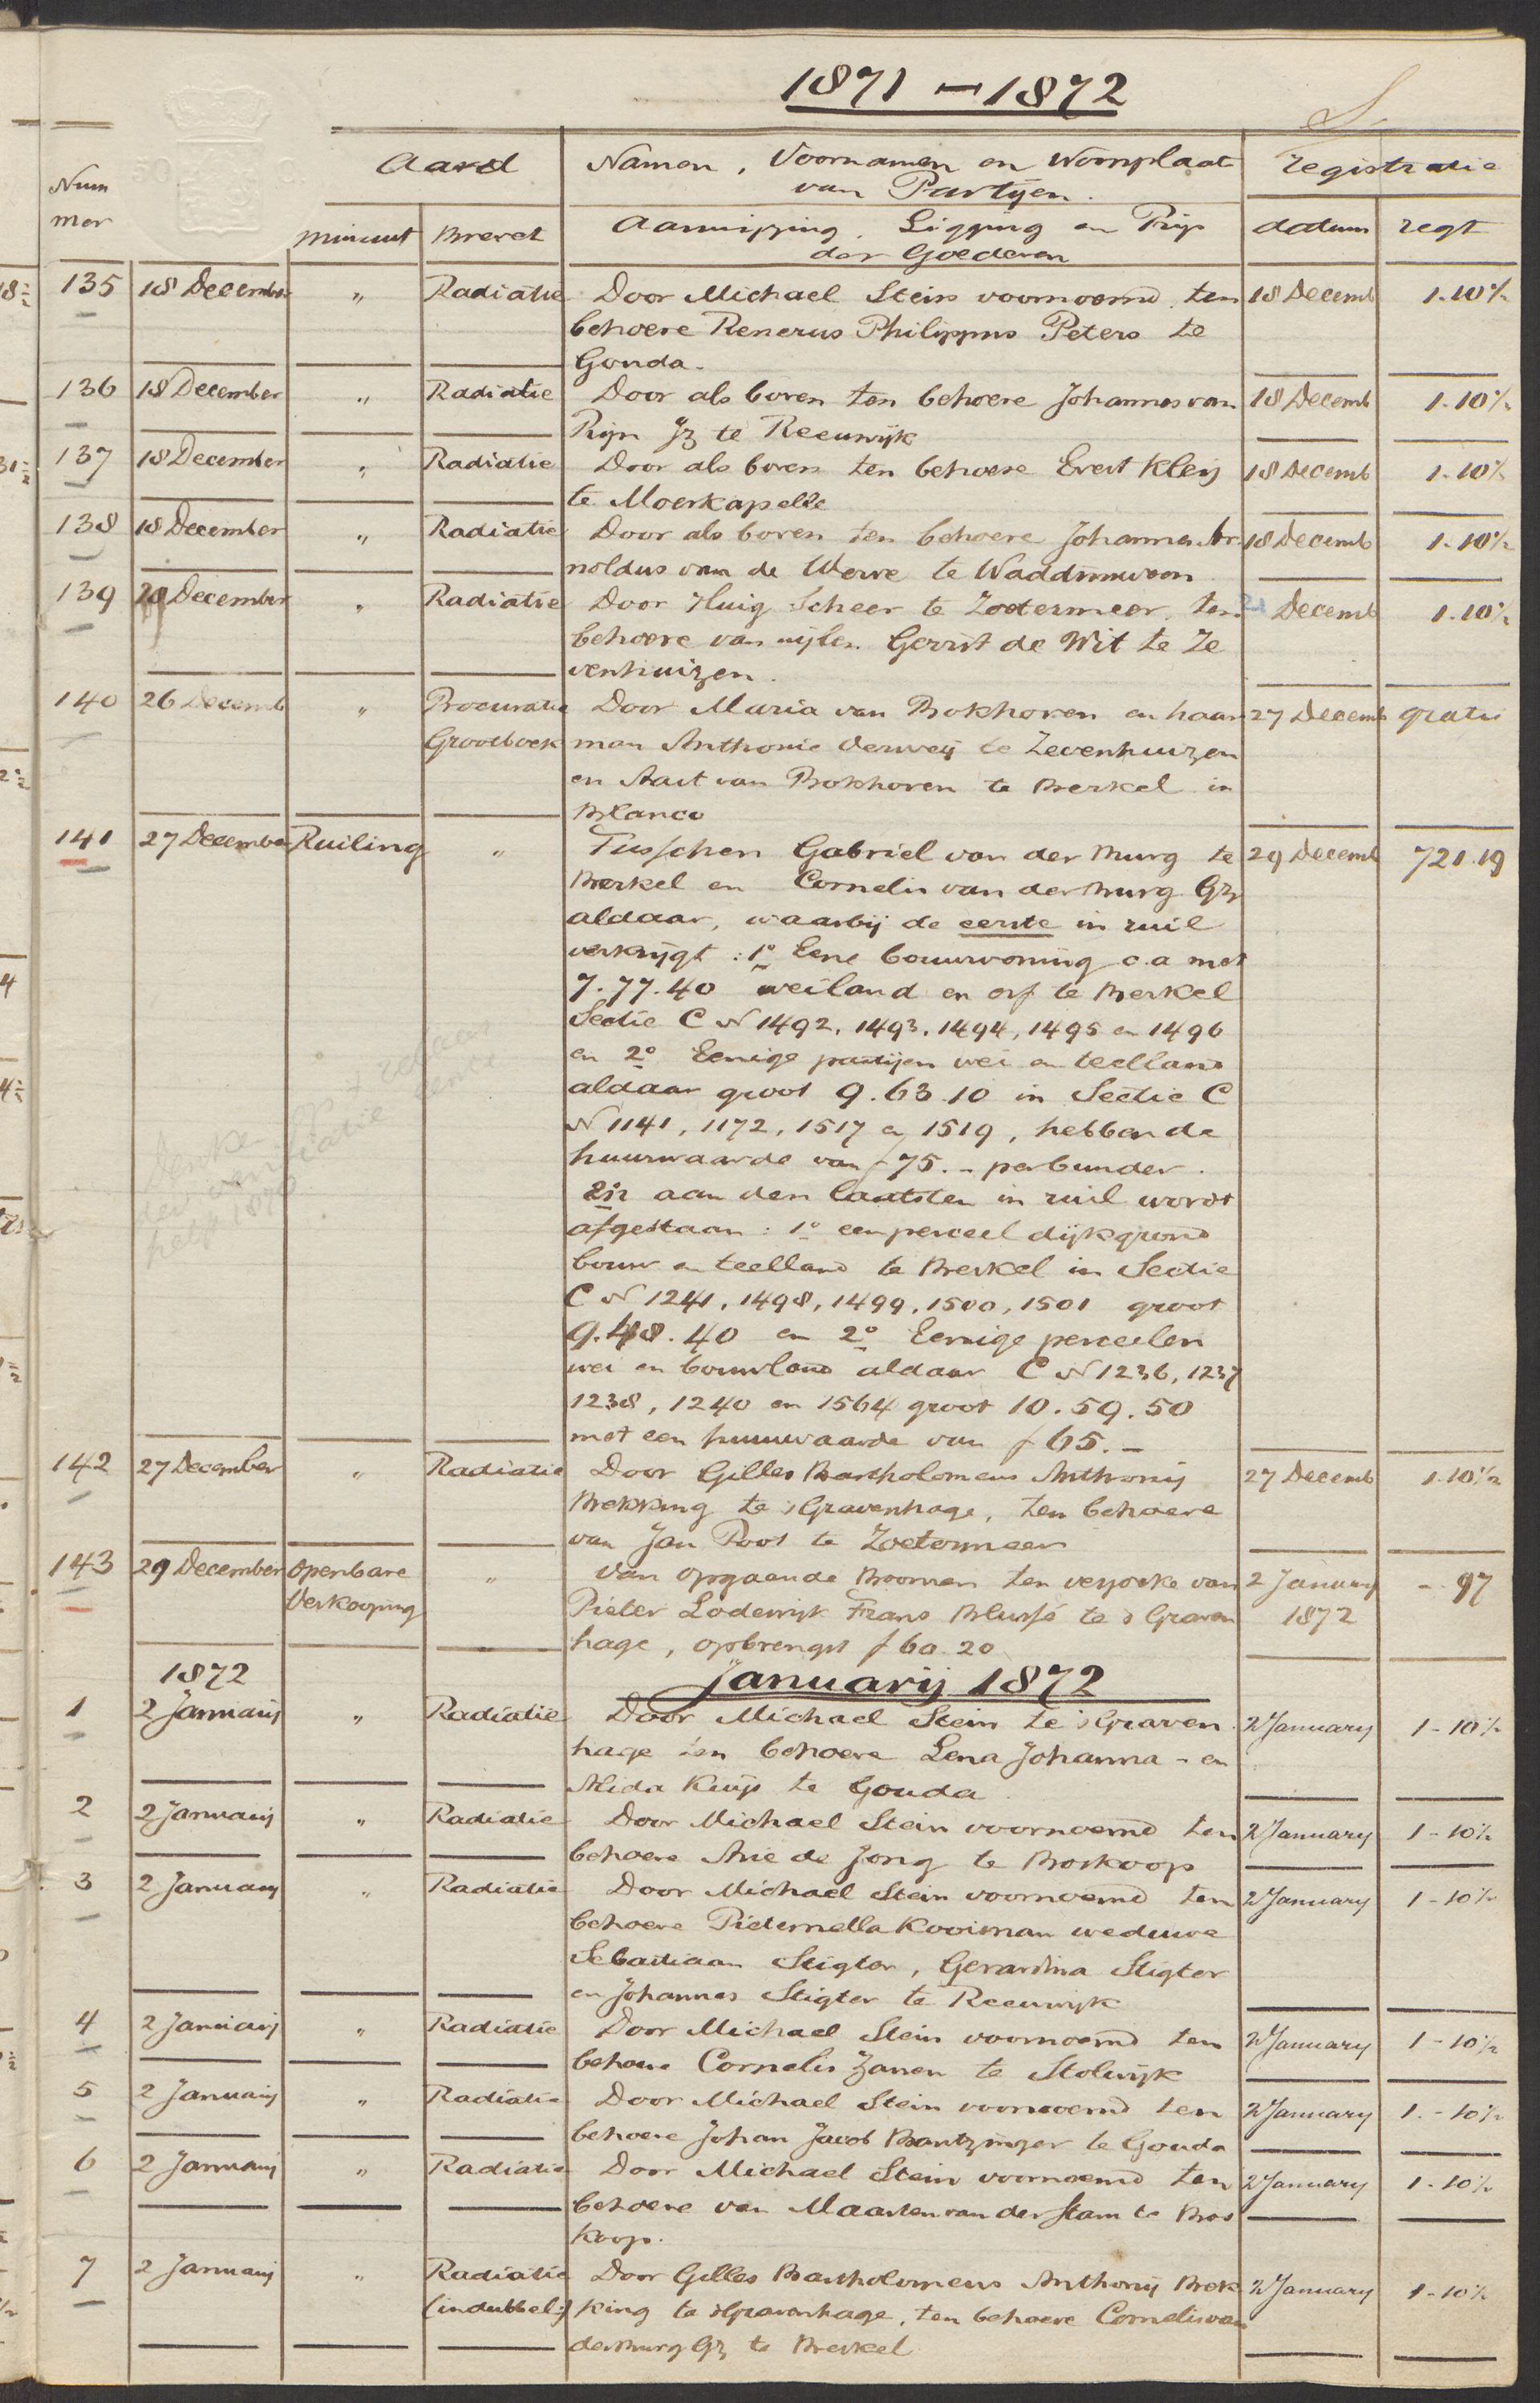 1871 - 1872
Num
mer
Aard
Namen, Voornamen en Woonplaats
van Partijen.
registratie
minuut
Brevet
Aanwijzing, Ligging en Prijs
der Goederen
datum
regt
135 18 December " Radiatie Door Michael Stein voornoemd, ten 18 Decemb 1.10½
behoeve Renerus Philippus Peters te
Gouda.
136 18 December " Radiatie Door als boven ten behoeve Johannes van 18 Decemb 1.10½
Rijn Jz te Reeuwijk
137 18 December " Radiatie Door als boven ten behoeve Evert Kleij 18 Decemb 1.10½
te Moerkapelle
138 18 December " Radiatie Door als boven ten behoeve Johannes Ar 18 Decemb 1.10½
noldus van de Werve te Waddinxveen
139 December " Radiatie Door Huig Scheer te Zoetermeer, ten 21 Decemb 1.10½
behoeve van wijlen Gerrit de Wit te Ze
venhuizen.
140 26 Decemb " Procuratie Door Maria van Bokhoven en haar 27 Decemb gratis
Grootboek man Anthonie Verweij te Zevenhuizen
en Aart van Bokhoven te Berkel in
Blanco
141 27 December Ruiling " Tusschen Gabriel van der Burg te 29 Decemb 721.19
Berkel en Cornelis van der Burg Gz
aldaar, waarbij de eerste in ruil
verkrijgt: 1° Eene bouwwoning c.a met
7.77.40 weiland en erf te Berkel
Sectie C N 1492, 1493, 1494, 1495 en 1496
en 2° Eenige partijen wei en teelland
aldaar groot 9.63.10 in Sectie C
N 1141, 1172, 1517 en 1519, hebbende
huurwaarde van f 75.- per bunder.
En aan den laatsten in ruil wordt
afgestaan: 1° een perceel dijkgrond
bouw en teelland te Berkel in Sectie
C N 1241, 1498, 1499, 1500, 1501 groot
9.48.40 en 2° Eenige perceelen
wei en bouwland aldaar C N 1236, 1237
1238, 1240 en 1564 groot 10.59.50
met een huurwaarde van f 65.-
142 27 December " Radiatie Door Gilles Bartholomeus Anthonij 27 Decemb 1.10½
Brekking te 's Gravenhage, ten behoeve
van Jan Poot te Zoetermeer
143 29 December openbare " Van opgaande Boomen ten verzoeke van 2 January - 97
Verkooping Pieter Lodewijk Frans Blussé te 's Graven 1872
hage, opbrengst f 60.20
1872 Januarij 1872
1 2 Januarij " Radiatie Door Michael Stein te 's Graven 2 January 1-10½
hage ten behoeve Lena Johanna - en
Alida Kuijs te Gouda.
2 2 Januarij " Radiatie Door Michael Stein voornoemd ten 2 January 1-10½
behoeve Arie de Jong te Boskoop
3 2 Januarij " Radiatie Door Michael Stein voornoemd ten 2 January 1-10½
behoeve Pieternella Kooiman weduwe
Sebastiaan Stigter, Gerardina Stigter
en Johannes Stigter te Reeuwijk
4 2 Januarij " Radiatie Door Michael Stein voornoemd ten 2 January 1-10½
behoeve Cornelis Zanen te Stolwijk
5 2 Januarij " Radiatie Door Michael Stein voornoemd ten 2 January 1.-10½
behoeve Johan Jacob Brantzinger te Gouda
6 2 Januarij " Radiatie Door Michael Stein voornoemd ten 2 January 1.10½
behoeve van Maarten van der Stam te Bos
koop.
7 2 Januarij " Radiatie Door Gilles Bartholomeus Anthonij Brek 2 January 1-10½
(in dubbel:) king te 's Gravenhage, ten behoeve Cornelis van
der Burg Gz te Berkel